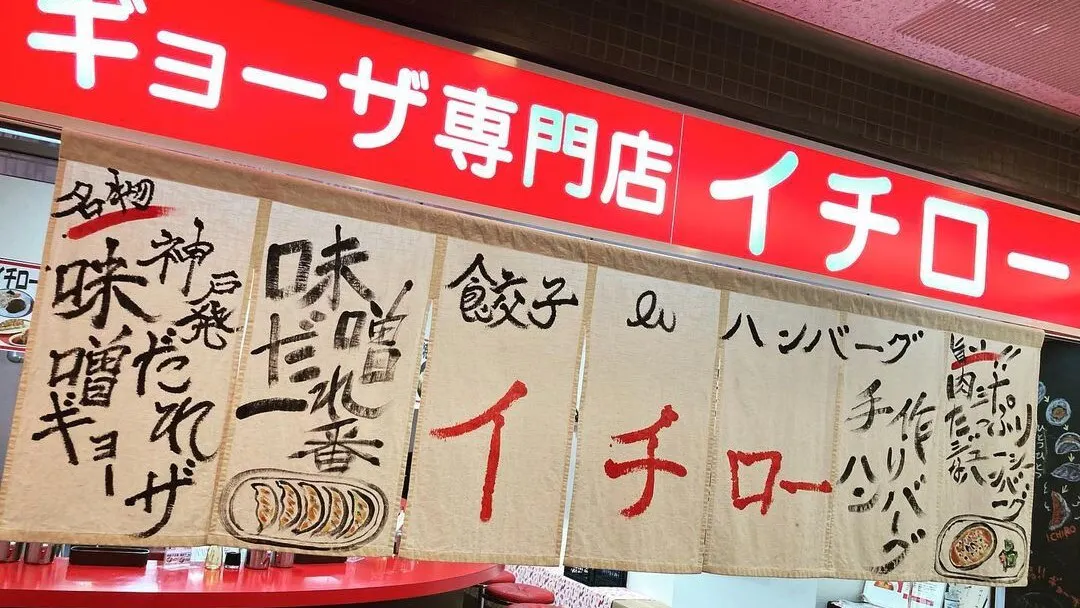 ギョーザ専門店 イチロー
名物
神戸発
味噌だれ
ギョーザ
味噌
だれ
一番
餃子 & ハンバーグ
イチロー
手作り
ハンバーグ
旨ッ!!
肉汁たっぷり
ジューシー
ハンバーグ
イチロー
ICHIRO